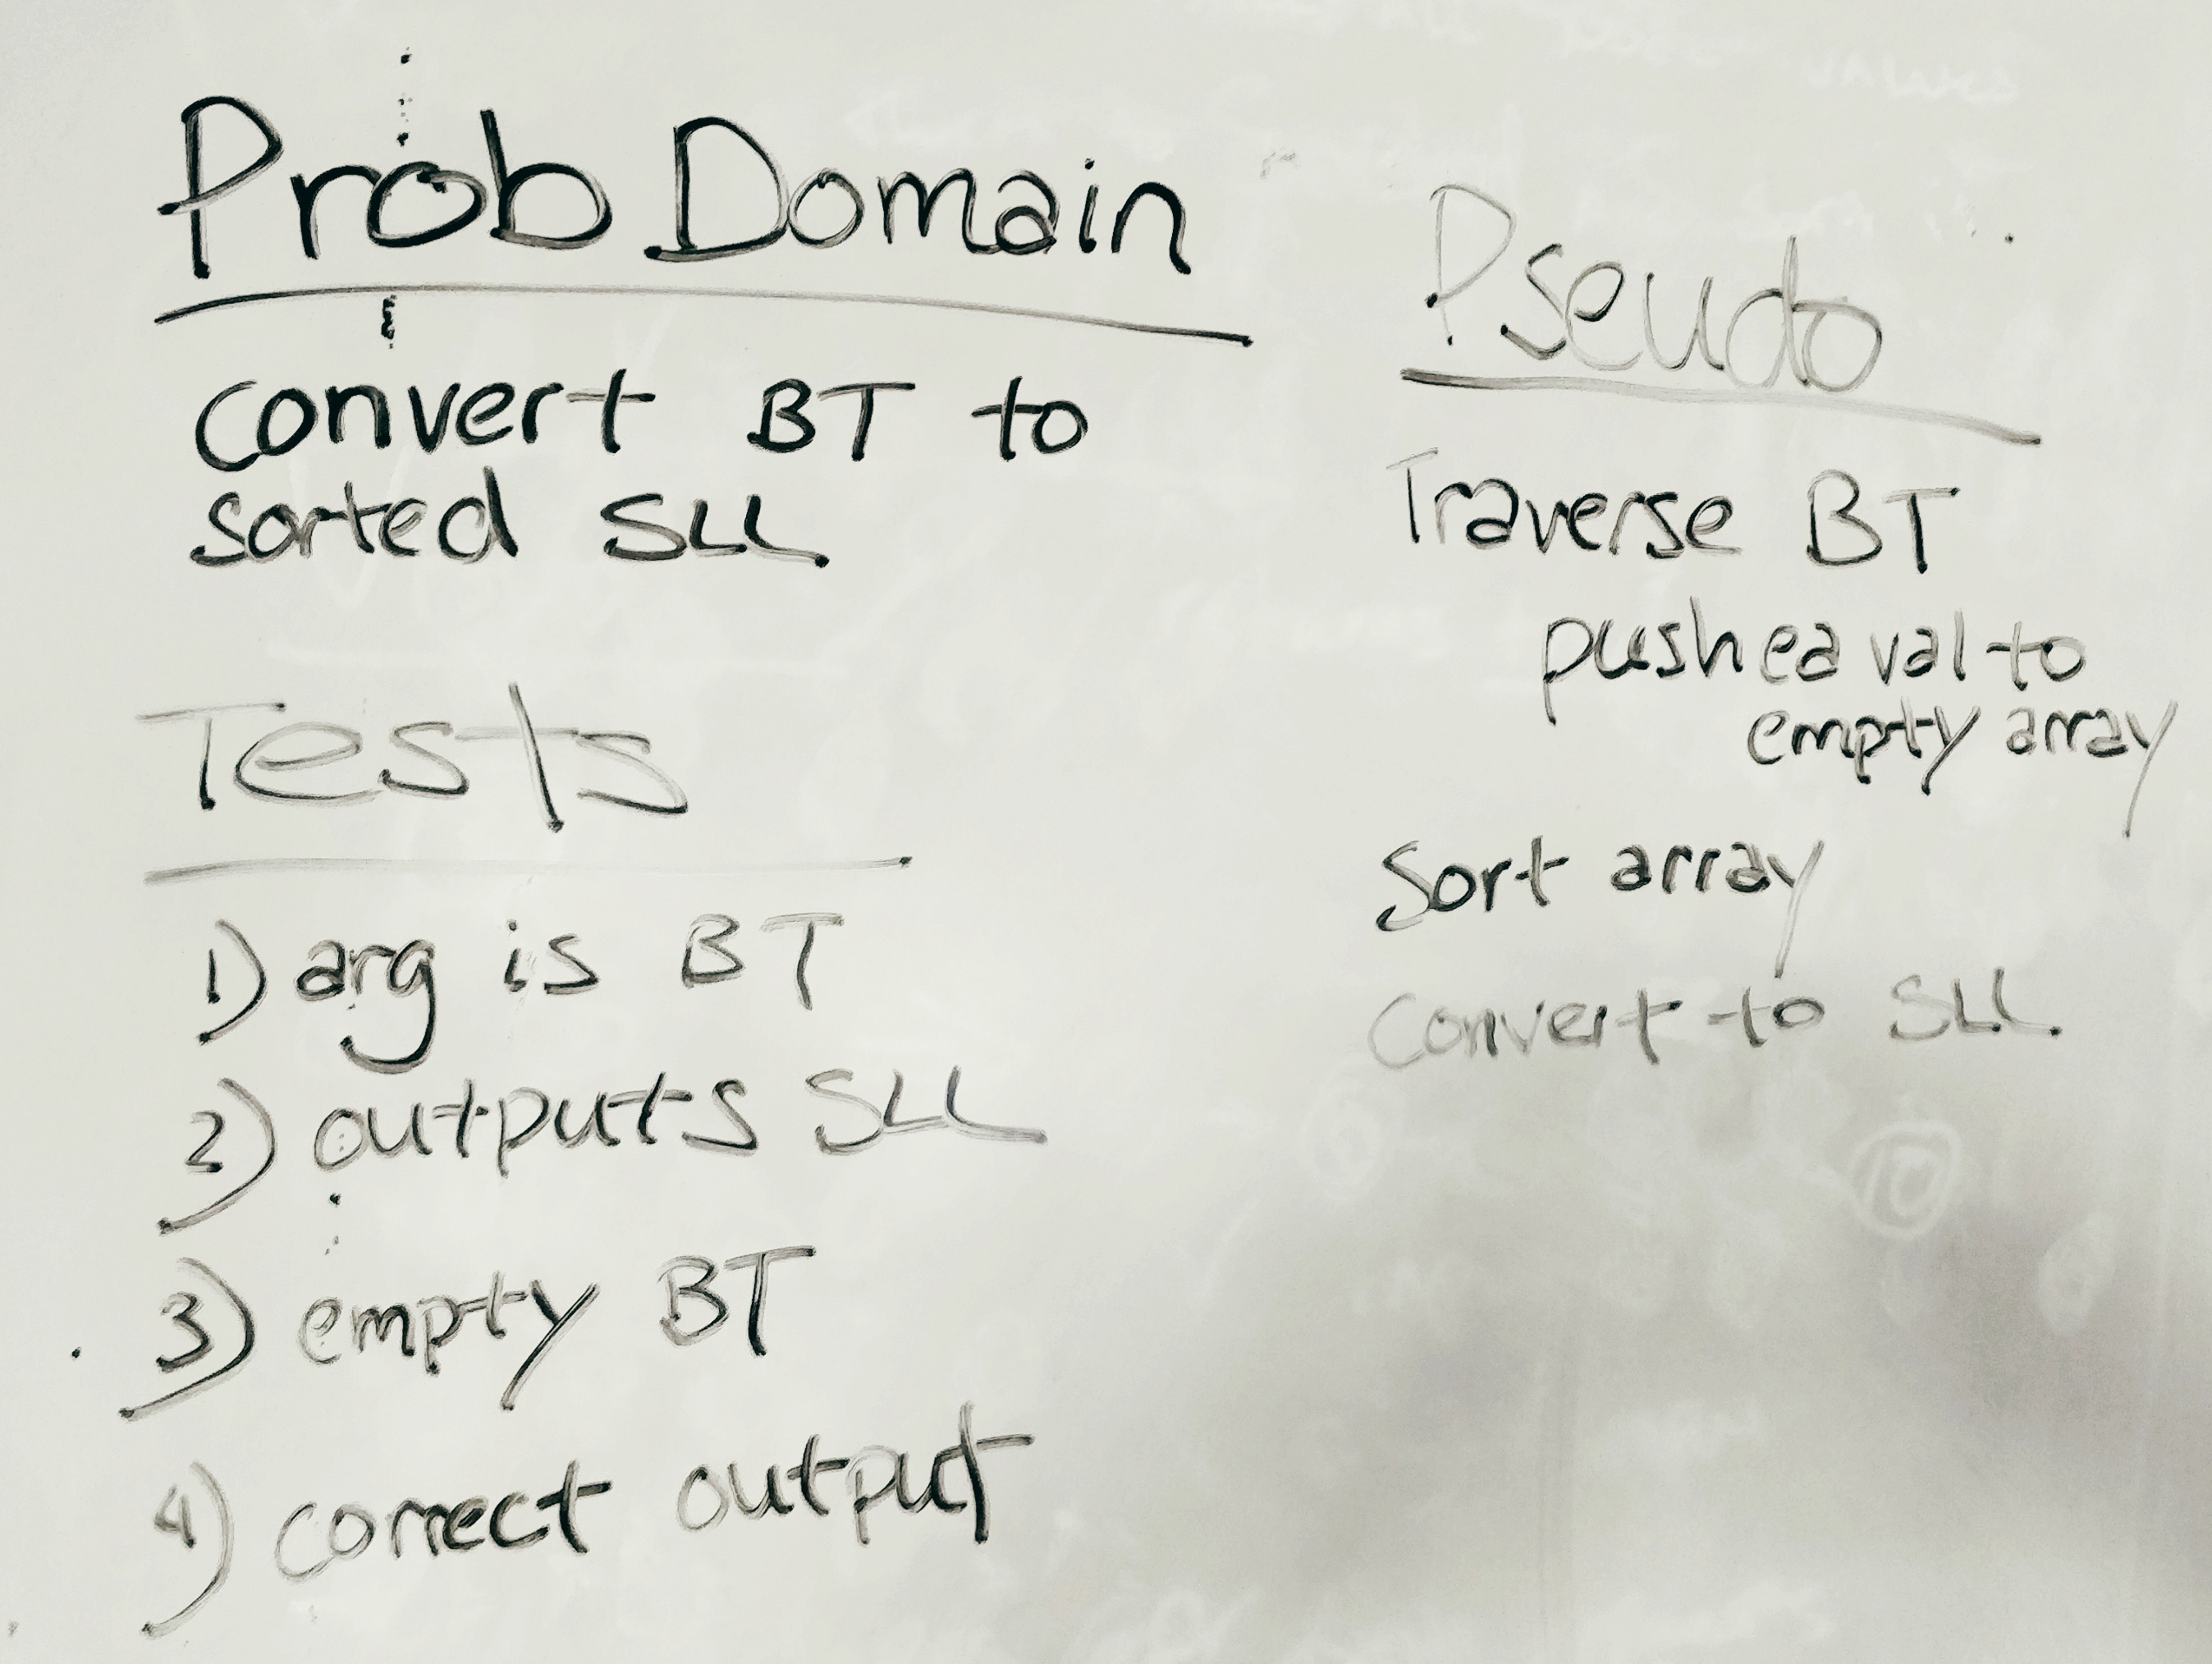 Prob Domain
convert BT to
sorted SLL
Tests
1) arg is BT
2) outputs SLL
3) empty BT
4) correct output
Pseudo
Traverse BT
push ea val to
empty array
Sort array
Convert to SLL